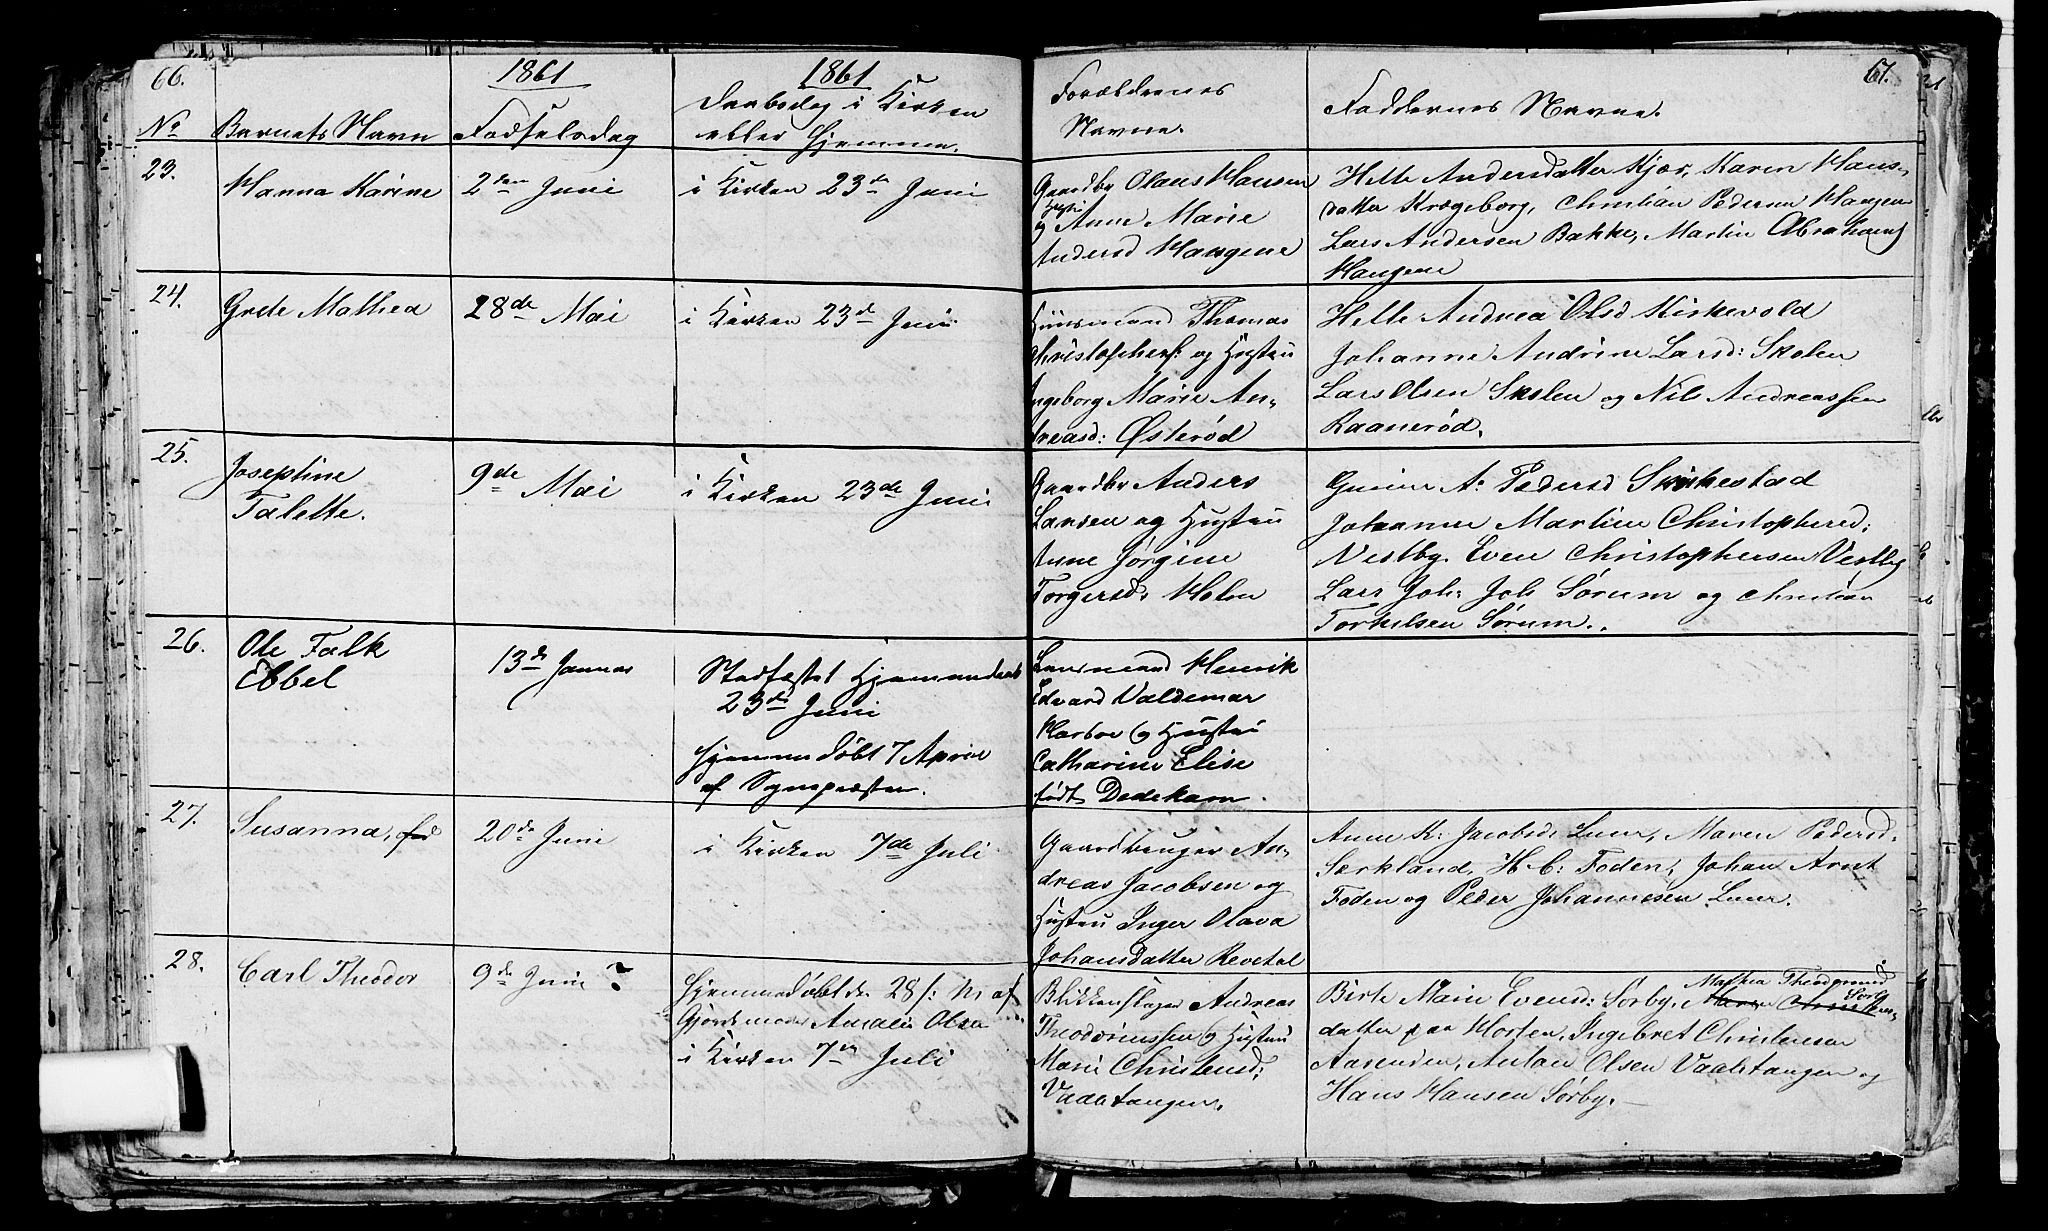 66.
1861
1861
No
Barnets Navn
Fødselsdag
Daabsdag i Kirken
eller Hjemme.
23.
Hanna Karine
2den Juni
i Kirken 23de Juni
24.
Grete Mathea
28de Mai
i Kirken 23de Juni
25.
Josephine
Talette.
9de Mai
i Kirken 23de Juni
26.
Ole Falk
Ebbel
13de Januar
Stadfæstet Hjemmedaab
23de Juni
Hjemmedøbt 7 April
af Sognepræsten.
27.
Susanna,
20de Juni
i Kirken 7de Juli
28.
Carl Theodor
9de Juni ?
Hjemmedøbt den 28 f: M: af
Gjordemoder Amalie Olsen
i Kirken 7de Juli
67.
Forældrenes
Navne.
Faddernes Navne.
Gaardbr Olaus Hansen
og Hustru Anne Marie
Andersd Haugene
Helle Andersdatter Kjær, Karen Hans-
datter Krogeborg, Christian Pedersen Haugen
Lars Andersen Bakke, Martin Abrahams
Haugene
Huusmand Thomas
Christophers: og Hustru
Ingeborg Marie An-
dreasd: Østerød
Helle Andrea Olsd Kirkevold
Johanne Andrine Larsd: Skolen
Lars Olsen Skolen og Nils Andreassen
Raanerød.
Gaardbr Anders
Larsen og Hustru
Anne Jørgine
Torgersd: Holen
Gunine A. Pedersd
Johanne Martine Christophersd:
Vestby. Even Christophersen Vestby
Lars Joh: Joh Sørum og Christian
Torkilsen Sørum.
Lensmand Henrik
Edvard Valdemar
Harboe og Hustru
Catharine Elise
født Dedekam.
Gaardbruger An-
dreas Jacobsen og
Hustru Inger Olava
Johansdatter Revetal
Anne K: Jacobsd: Luer, Maren Pedersd.
Sørkland, H. C: Foden, Johan Arnt
Foden og Peder Johannesen Luer.
Blikkenslager Andreas
Theodorinssen og Hustru
Marie Christensd:
Vaaletangen.
Mathea Theodorins
Birte Marie Evensd: Sørby, Maren
datter paa Horten, Ingebret Christensen
Aasenden, Anton Olsen Vaaletangen og
Hans Hansen Sørby.